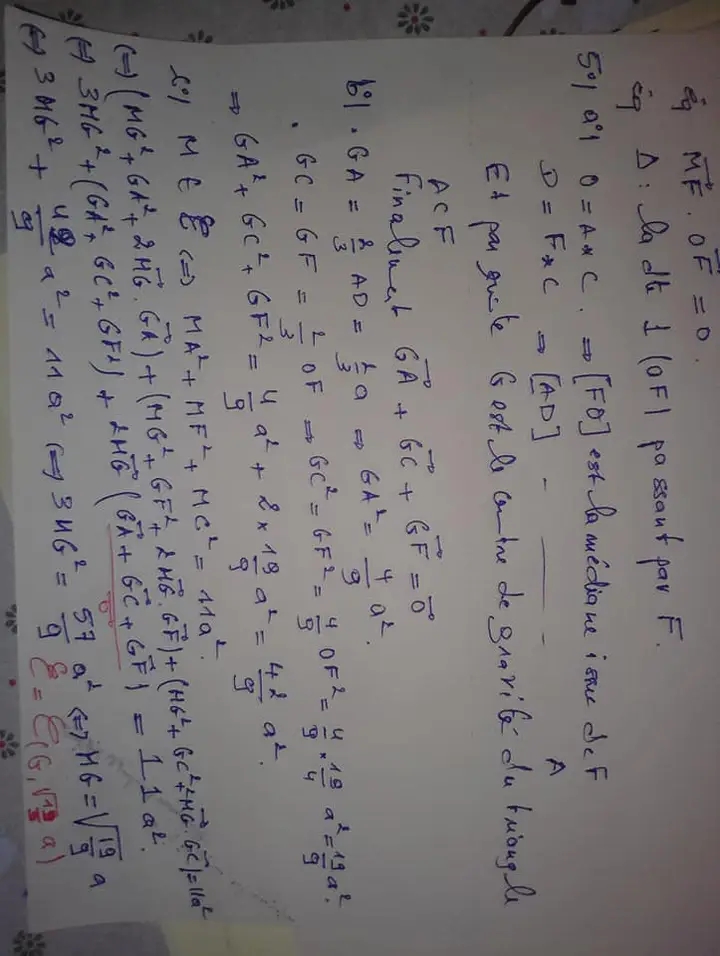 éq MF⃗ . OF⃗ = 0.
éq Δ : la dte ⊥ (OF) passant par F.
5°/ a°/ O = A*C . ⇒ [FO] est la médiane issue de F
D = F*C ⇒ [AD] - ——— - A
Et par suite G est le centre de gravité du triangle
ACF
Finalement GA⃗ + GC⃗ + GF⃗ = 0⃗
b°/ . GA = 2/3 AD = 2/3 a ⇒ GA² = 4/9 a².
. GC = GF = 2/3 OF ⇒ GC² = GF² = 4/9 OF² = 4/9 × 19/4 a² = 19/9 a².
⇒ GA² + GC² + GF² = 4/9 a² + 2 × 19/9 a² = 42/9 a².
c°/ M ∈ ℰ ⇔ MA² + MF² + MC² = 11a².
⇔ (MG² + GA² + 2MG⃗ . GA⃗) + (MG² + GF² + 2MG⃗ . GF⃗) + (MG² + GC² + 2MG⃗ . GC⃗) = 11a²
⇔ 3MG² + (GA² + GC² + GF²) + 2MG⃗ (GA⃗ + GC⃗ + GF⃗) = 11a².
0⃗
⇔ 3MG² + 42/9 a² = 11a² ⇔ 3MG² = 57/9 a² ⇔ MG = √19/9 a
ℰ = ℰ(G, √19/9 a)